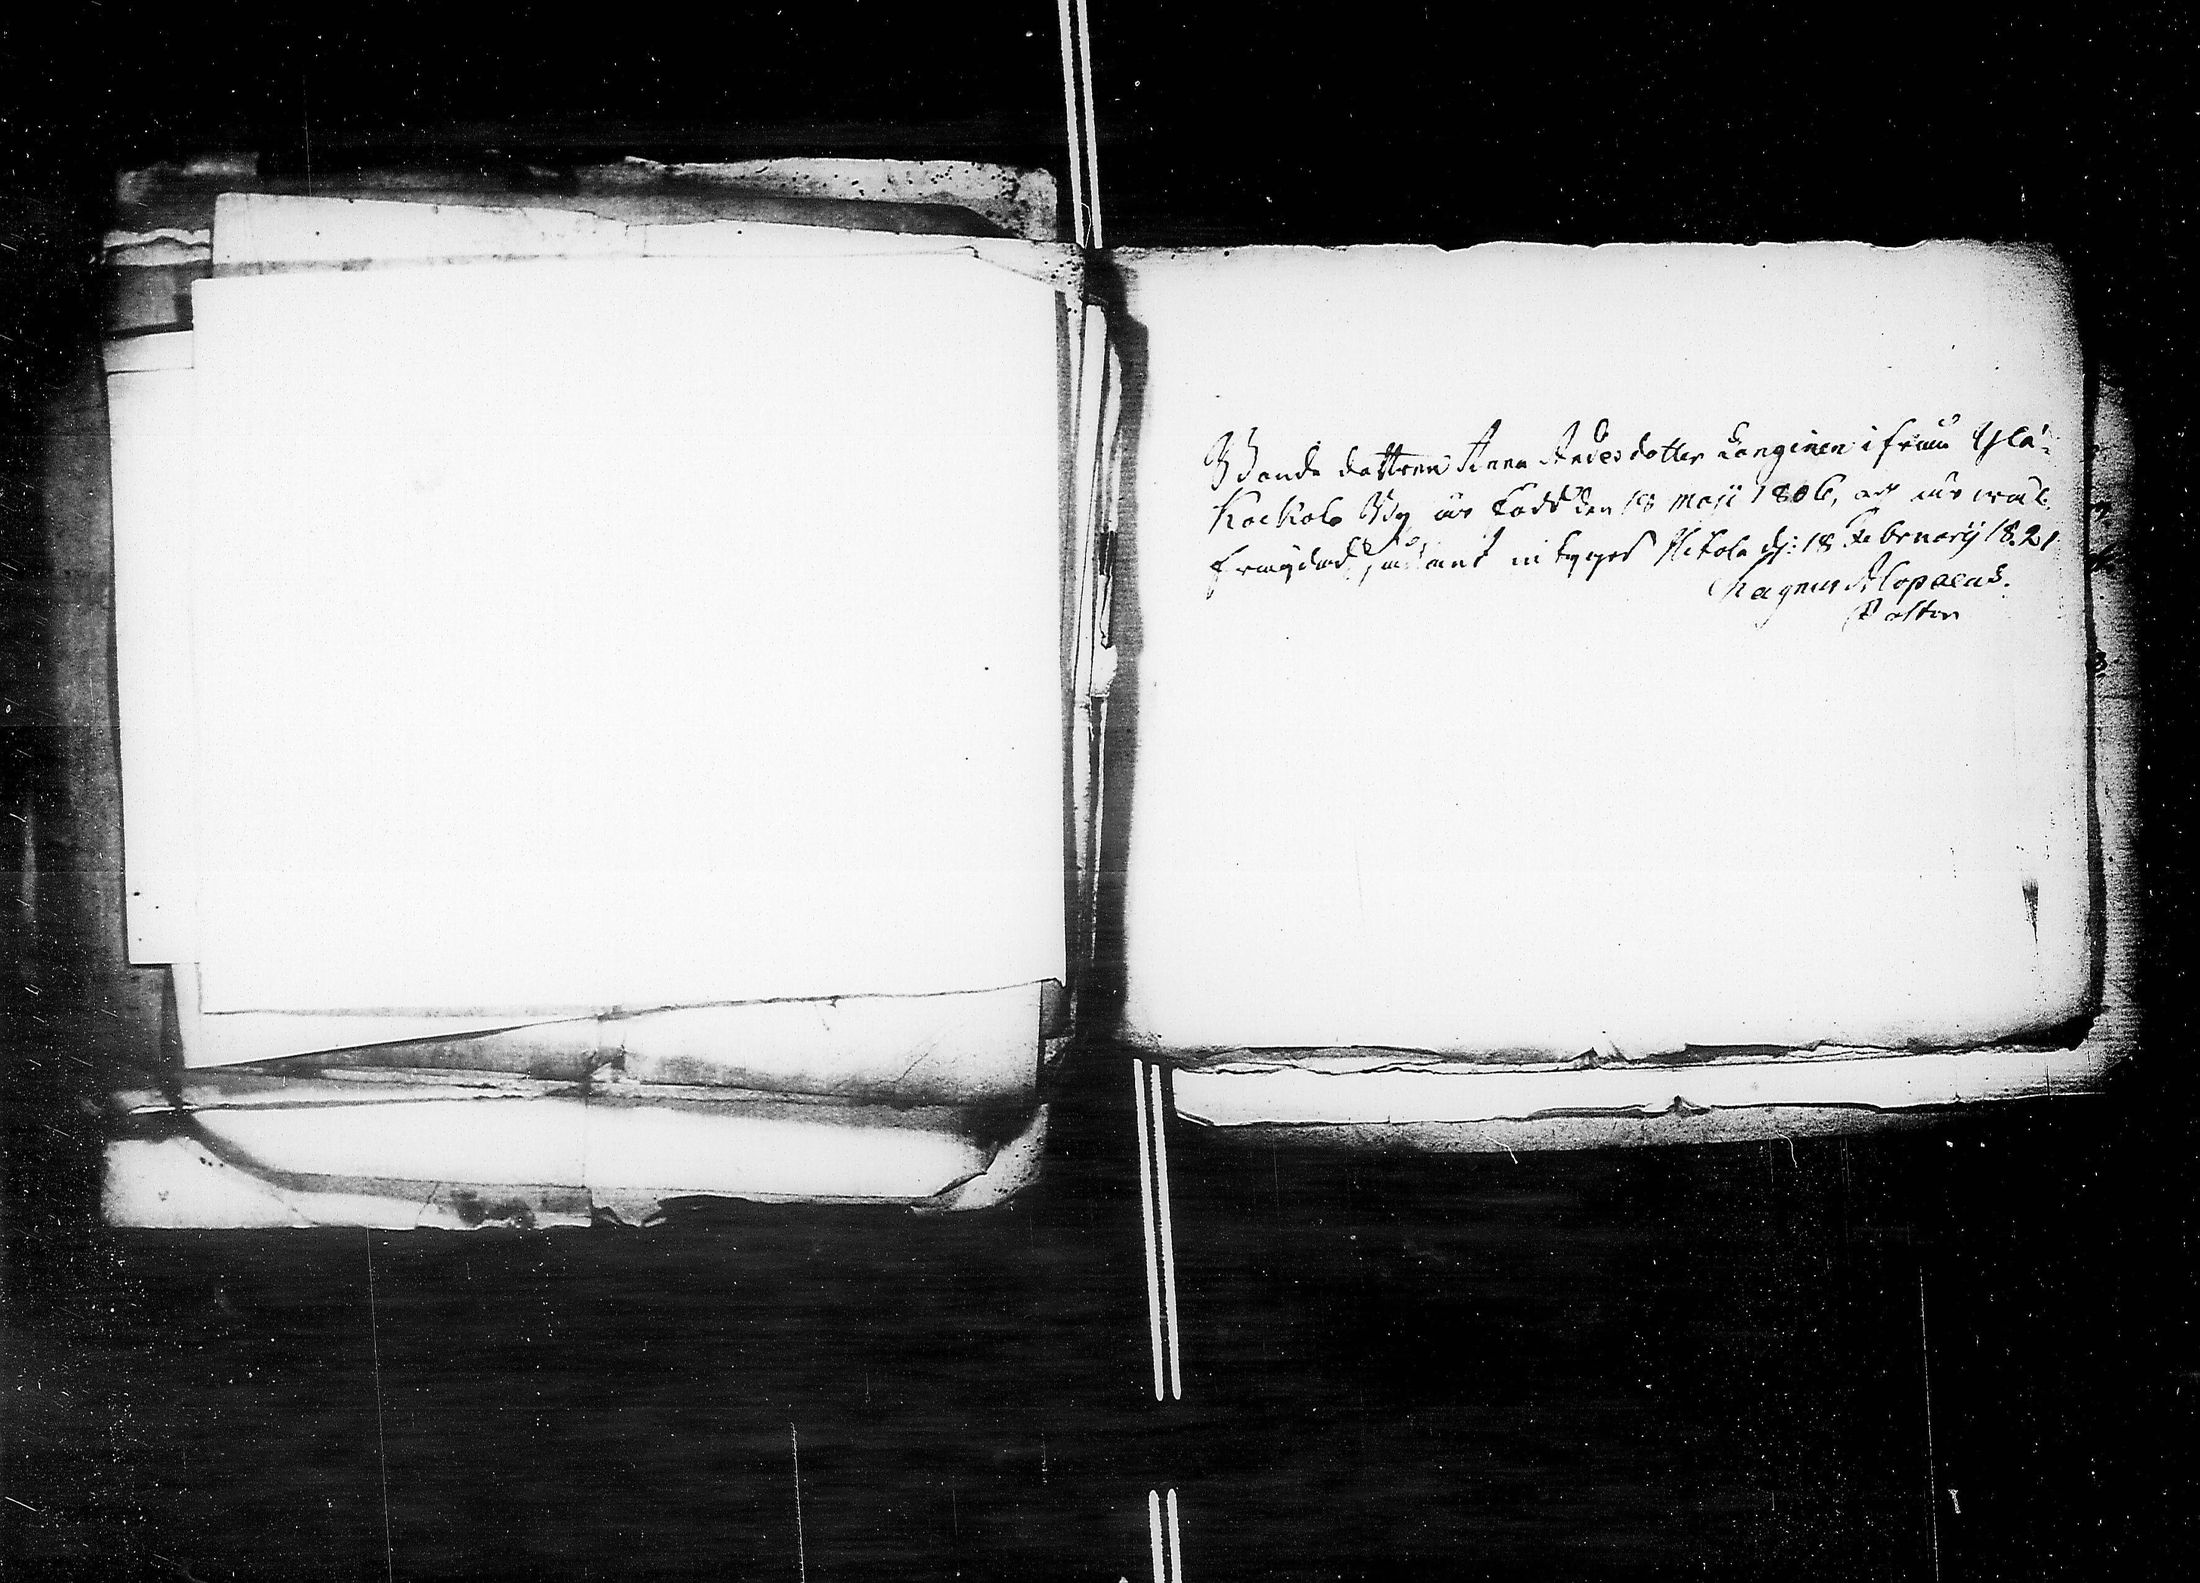 Bonde dottren Anna Andersdotter Langinen ifrån Ylä-
Kockola By är född den 18 Maji 1806, och är wäl
frägdad, sådant intygar Hitola d: 18 Februarij 1821
Magnus Alopaeus.
Pastor